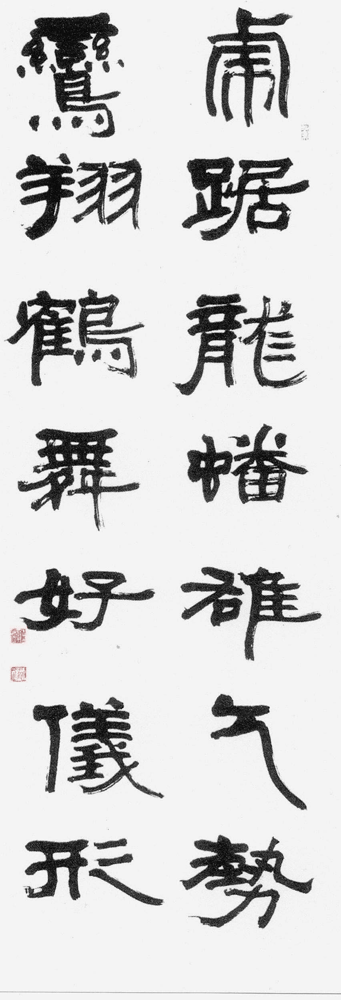 虎踞龍蟠雄气勢
鸞翔鶴舞好儀形